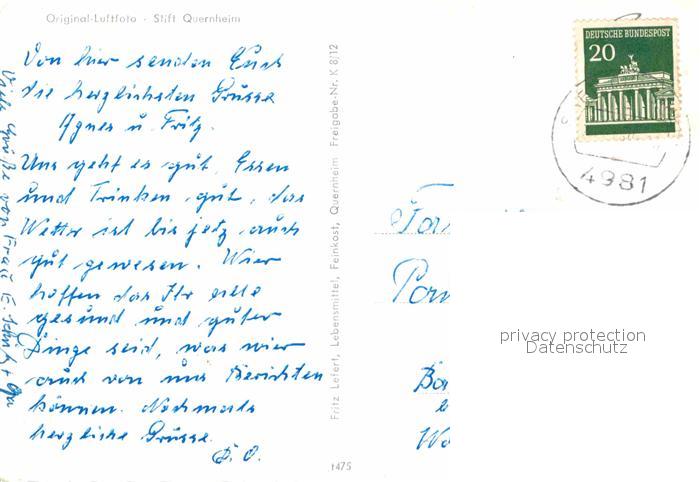 Original-Luftfoto · Stift Quernheim
Von hier senden Euch
die herzlichsten Grüsse
Agnes u. Fritz.
Uns geht es gut, Essen
und Trinken gut, das
Wetter ist bis jetz auch
gut gewesen. Wier
hoffen das Ihr alle
gesund und guter
Dinge seid, was wier
auch von uns Berichten
können. Nochmals
herzliche Grüsse.
D. O.
Viele Grüße von Frau E.
Fritz Lefert, Lebensmittel, Feinkost, Quernheim Freigabe-Nr. K 8/12
1475
DEUTSCHE BUNDESPOST
20
4981
Fam
Pau
Ba
Wo
privacy protection
Datenschutz